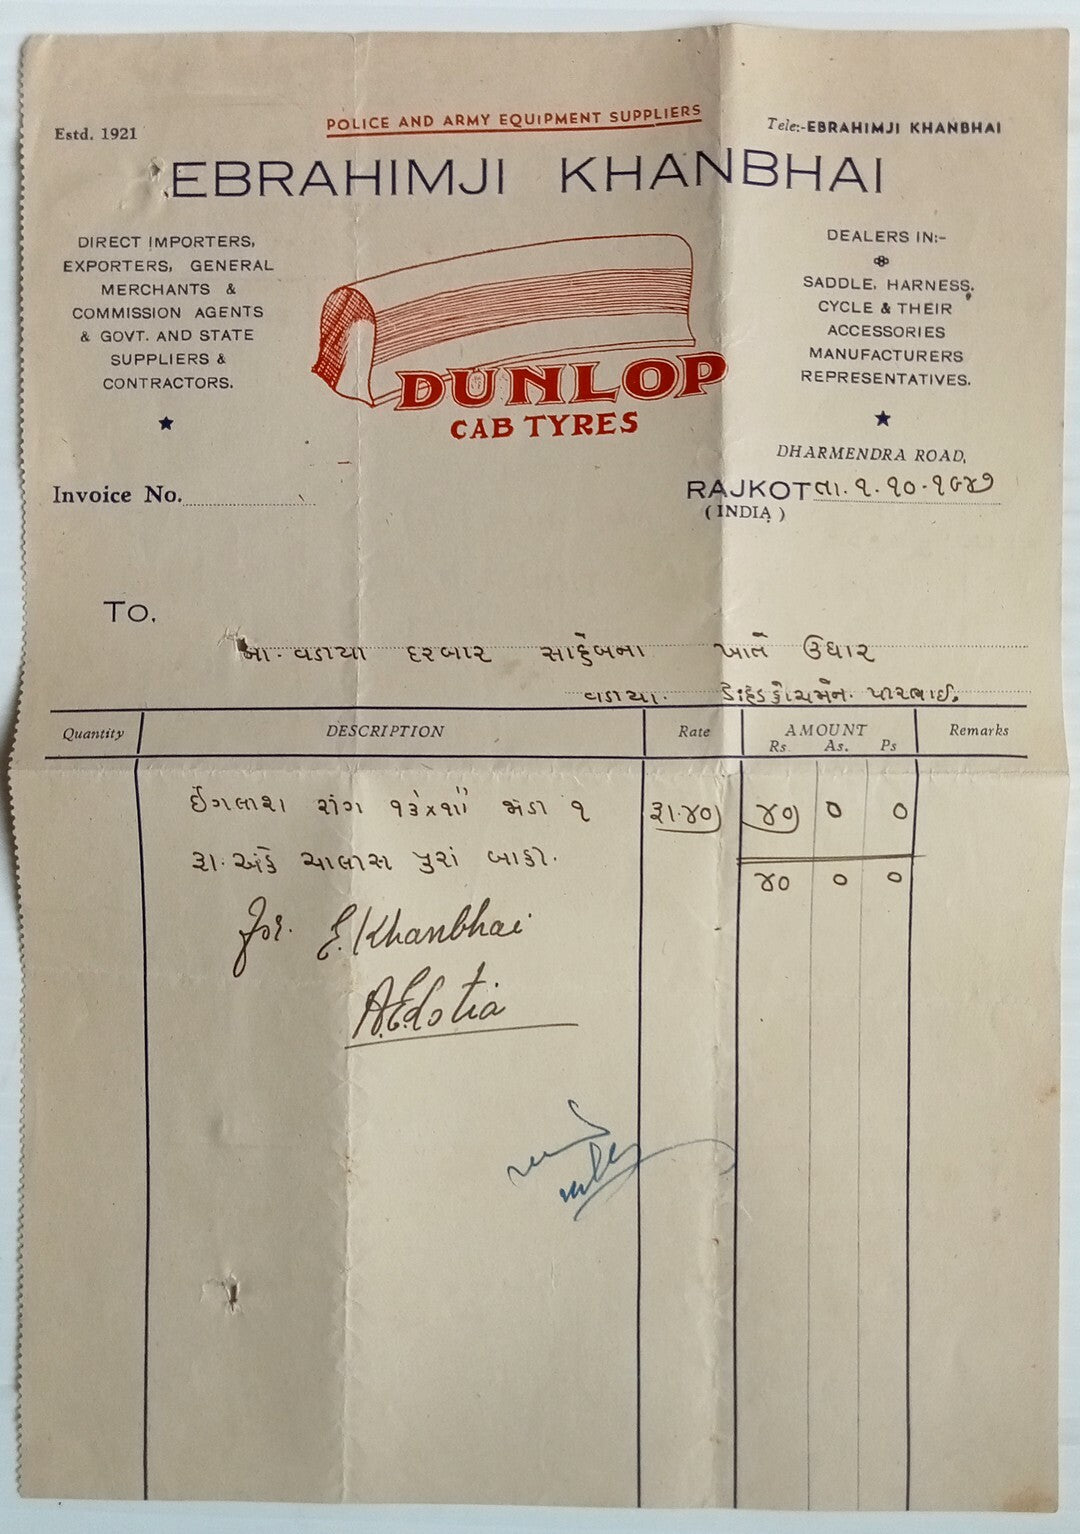 Estd. 1921
POLICE AND ARMY EQUIPMENT SUPPLIERS
Tele:-EBRAHIMJI KHANBHAI
EBRAHIMJI KHANBHAI
DIRECT IMPORTERS,
EXPORTERS, GENERAL
MERCHANTS &
COMMISSION AGENTS
& GOVT. AND STATE
SUPPLIERS &
CONTRACTORS.
DUNLOP
CAB TYRES
DEALERS IN:-
SADDLE, HARNESS,
CYCLE & THEIR
ACCESSORIES
MANUFACTURERS
REPRESENTATIVES.
DHARMENDRA ROAD,
Invoice No.
RAJKOT તા. ૧.૧૦.૧૯૪૭
(INDIA)
TO.
વડાયા દરબાર સાહેબના ખાતે ઉધાર
વડાયા.
Quantity DESCRIPTION Rate AMOUNT Remarks
Rs. As. Ps
ઈંગલાશ રાંગ ૧ રૂા.૪૦) ૪૦) ૦ ૦
રૂા. અંકે ચાલીસ પુરાં બાકી.
૪૦ ૦ ૦
for. E. Khanbhai